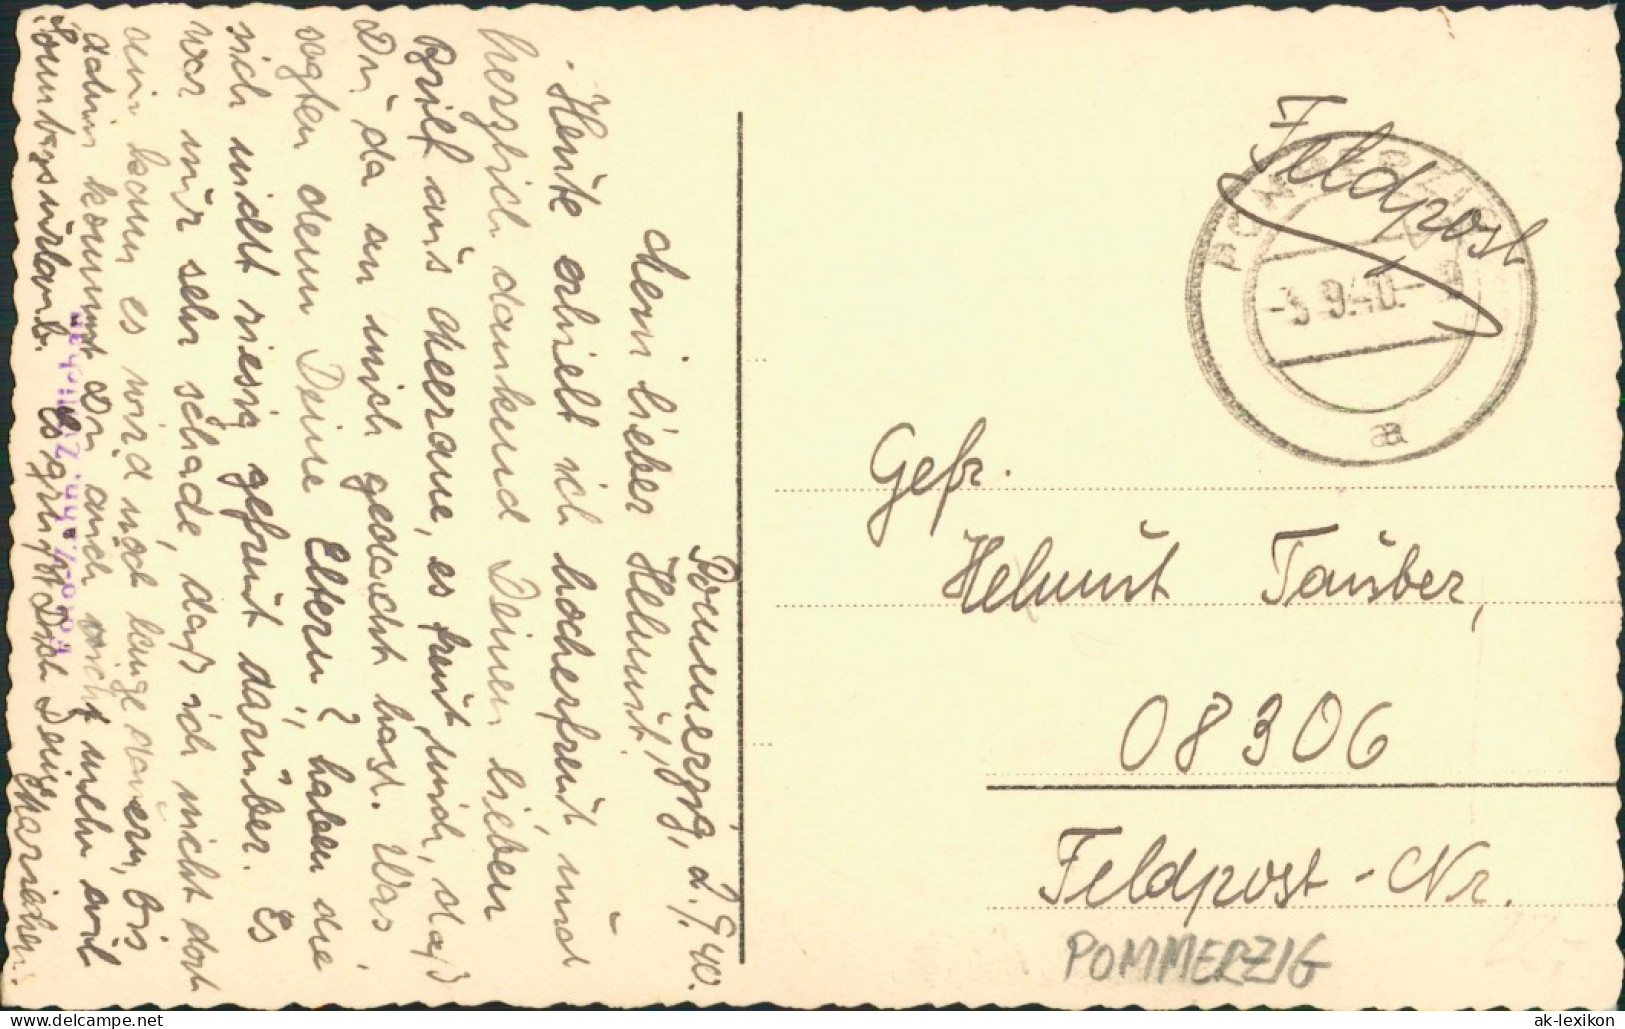 Pommerzig, 2.9.40.
Mein lieber Helmut!
Heute erhielt ich hocherfreut und
herzlich dankend Deinen lieben
Brief aus Meerane, es freut mich, daß
Du da an mich gedacht hast. Was
sagten denn Deine Eltern?, haben die
sich nicht riesig gefreut darüber. Es
war nur sehr schade, daß ich nicht dort
sein kann es wird noch lange dauern, bis
dahin kommst Du auch nicht mehr auf
Sonntagsurlaub. Es grüßt Dich Deine
Mariechen.
Feldpost
POMMERZIG
-3.9.40.-
a
Gefr.
Helmut Tauber,
08306
Feldpost-Nr.
POMMERZIG
delcampe.net
ak-lexikon